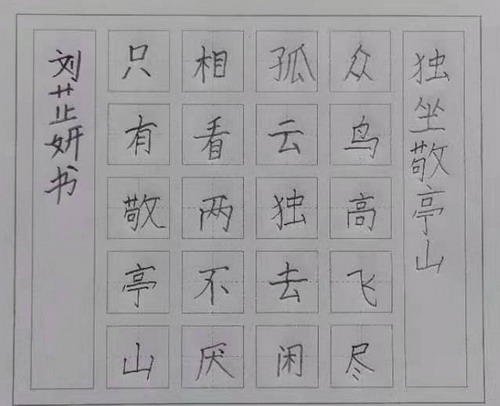 独坐敬亭山
众鸟高飞尽
孤云独去闲
相看两不厌
只有敬亭山
刘芷妍书